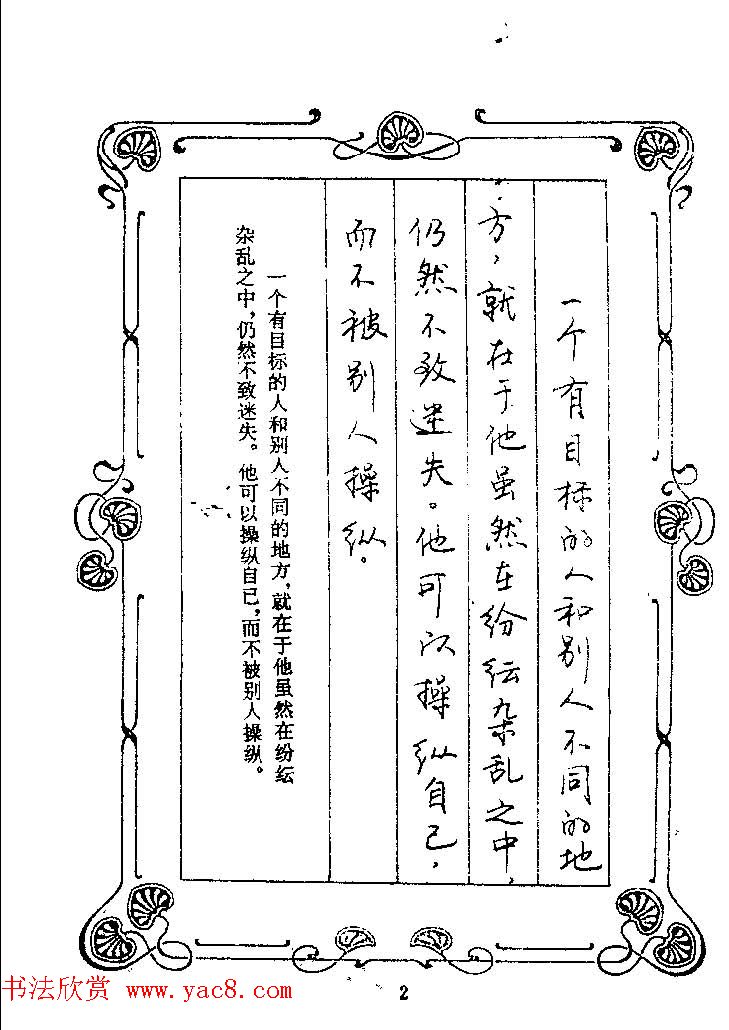 一个有目标的人和别人不同的地
方，就在于他虽然在纷纭杂乱之中，
仍然不致迷失。他可以操纵自己，
而不被别人操纵。
一个有目标的人和别人不同的地方，就在于他虽然在纷纭
杂乱之中，仍然不致迷失。他可以操纵自己，而不被别人操纵。
2
书法欣赏 www.yac8.com